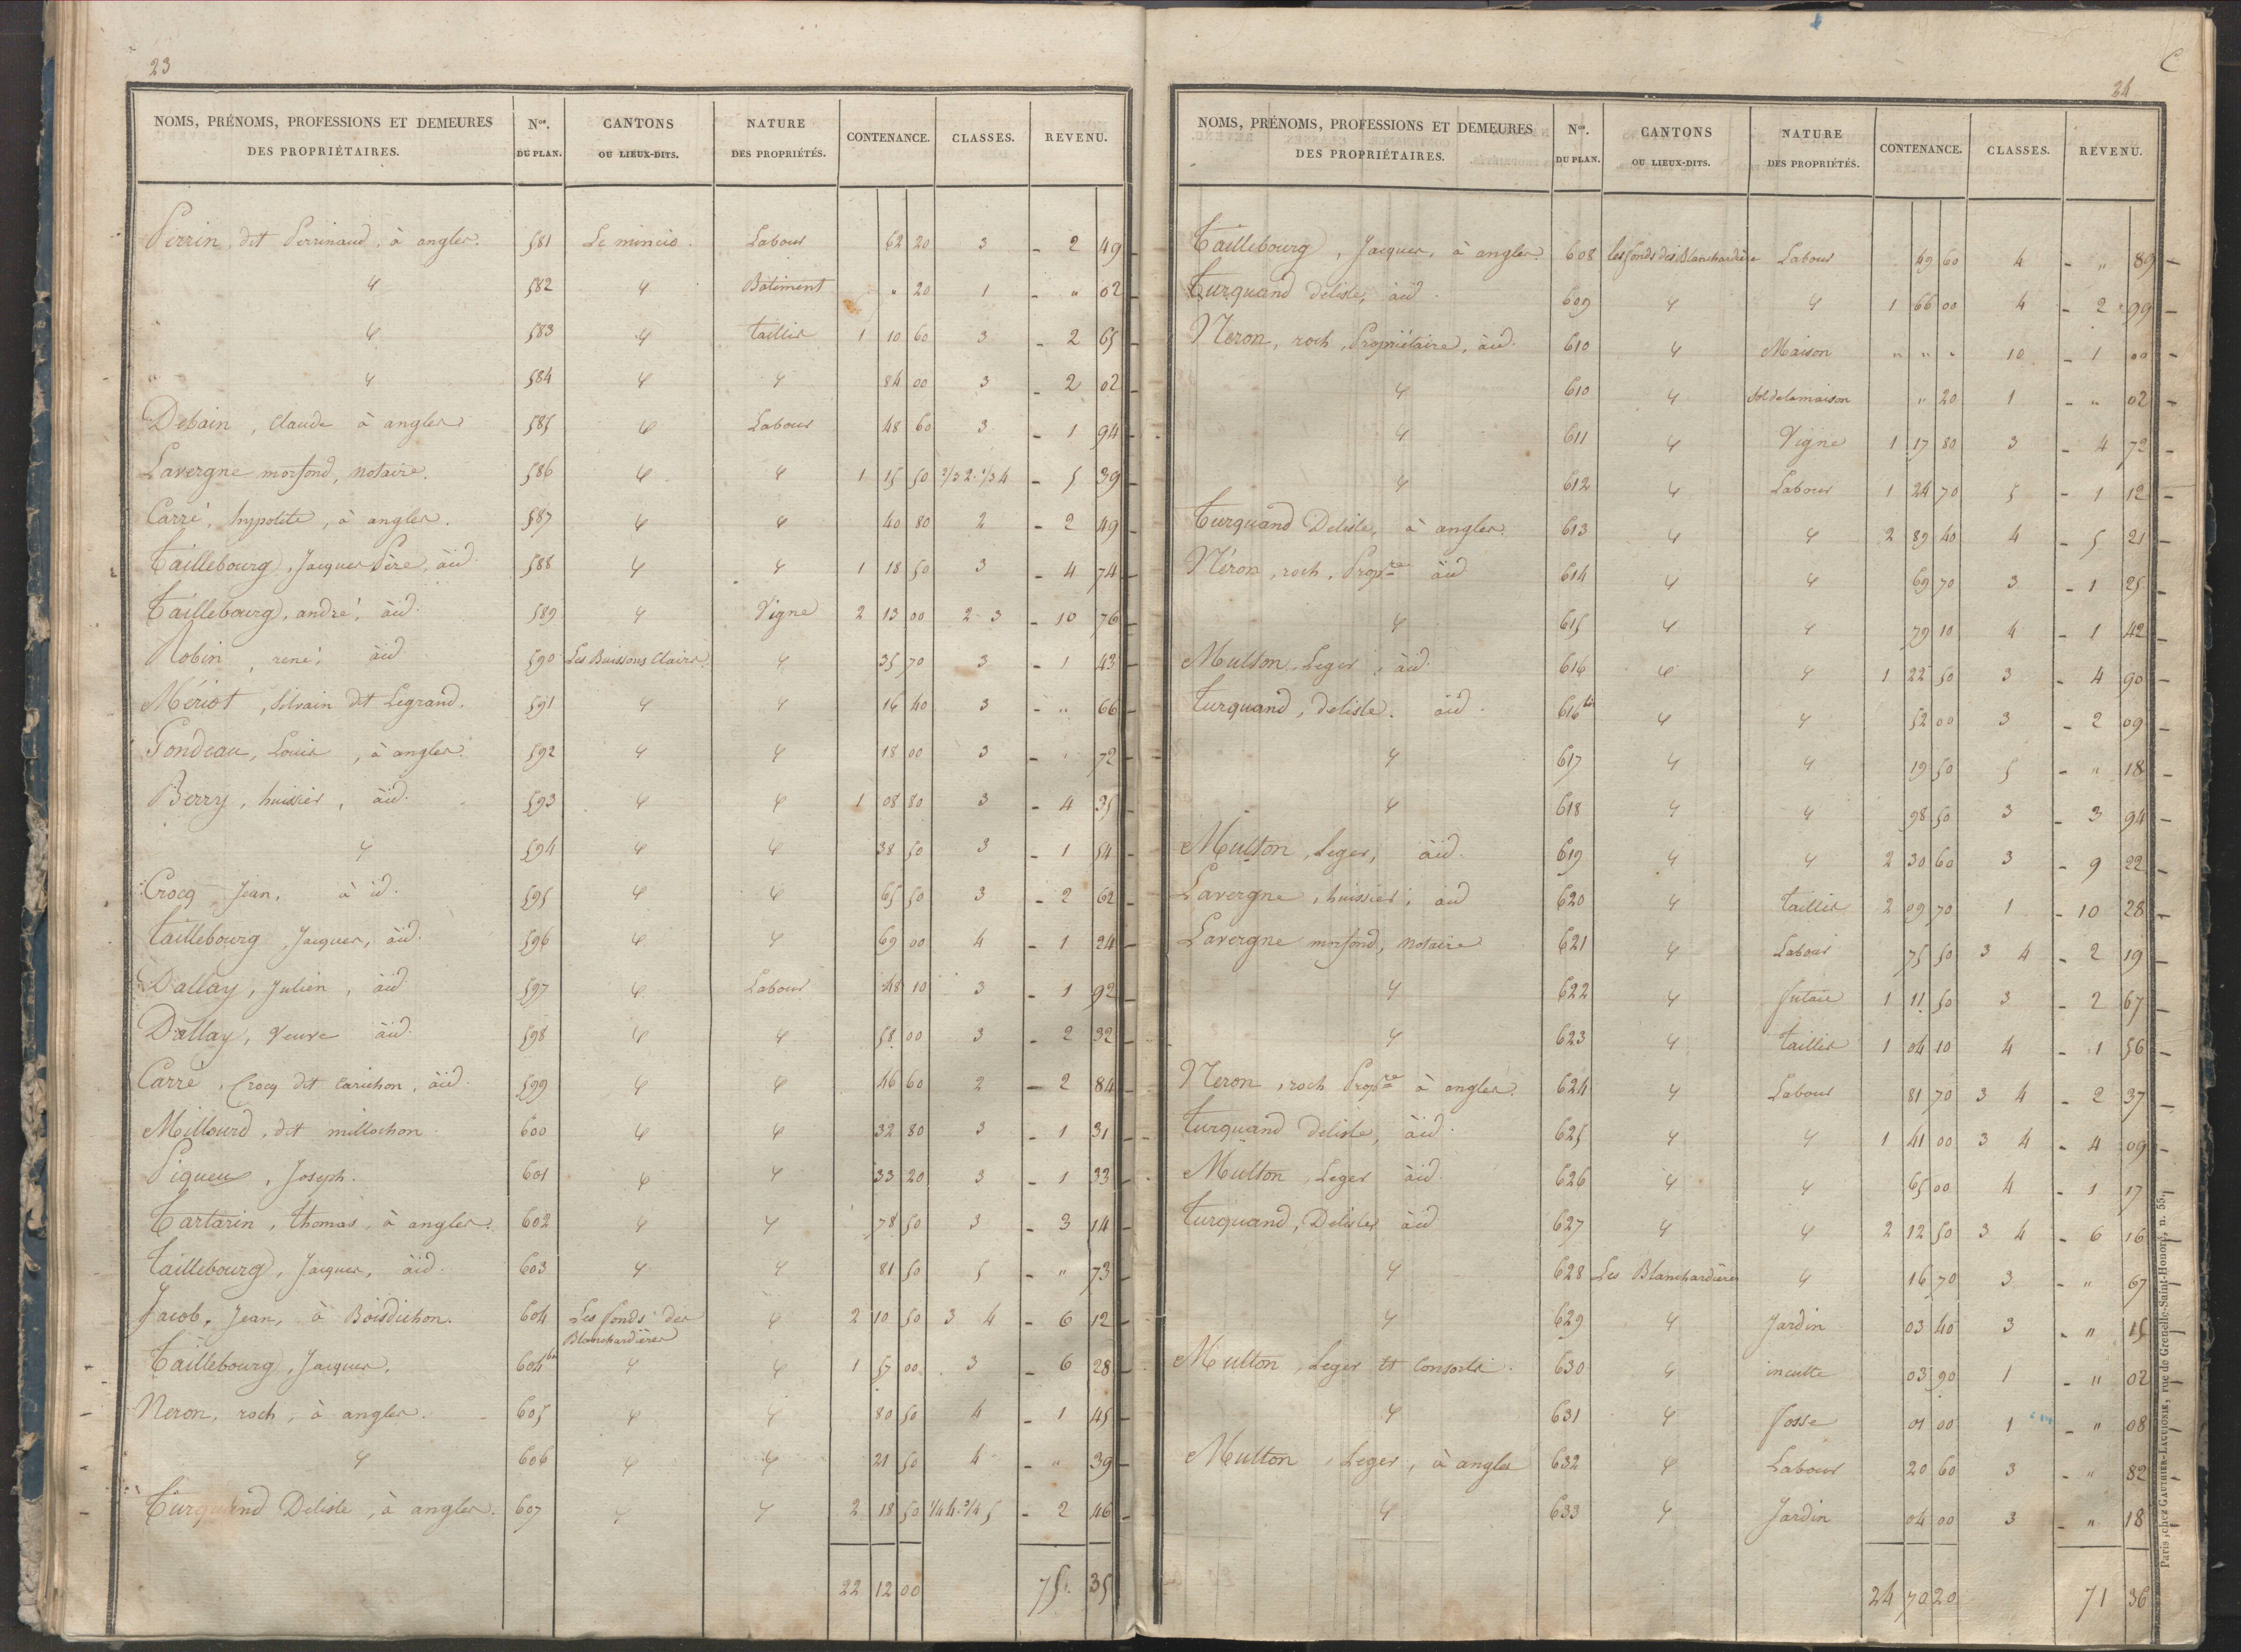 23
NOMS, PRÉNOMS, PROFESSIONS ET DEMEURES DES PROPRIÉTAIRES. Nos. DU PLAN. CANTONS OU LIEUX-DITS. NATURE DES PROPRIÉTÉS. CONTENANCE. CLASSES. REVENU.
Perrin, dit Perrinaud, à angles. 581 Le mincio. Labour 62 20 3 - 2 49
" 582 " Bâtiment " 20 1 - " 02
" 583 " taillis 1 10 60 3 - 2 65
" 584 " " 84 00 3 - 2 02
Debain, Claude à angles 585 " Labour 48 60 3 - 1 94
Lavergne morfond, notaire. 586 " " 1 15 50 2/3 2. 1/3 4 - 5 39
Carré, hypolite, à angles. 587 " " 40 80 2 - 2 49
Taillebourg, Jacques Père, àid. 588 " " 1 18 50 3 - 4 74
Taillebourg, andré, àid. 589 " Vigne 2 13 00 2-3 - 10 76
Robin, rené, àid 590 Les Buissons Clairs. " 35 70 3 - 1 43
Mériot, Silvain dt Legrand. 591 " " 16 40 3 - " 66
Gondeau, Louis, à angles. 592 " " 18 00 3 - " 72
Berry, huissier, àid. 593 " " 1 08 80 3 - 4 35
" 594 " " 38 50 3 - 1 54
Crocq Jean, à id. 595 " " 65 50 3 - 2 62
Taillebourg, Jacques, àid. 596 " " 69 00 4 - 1 24
Dallay, Julien, àid 597 " Labour 48 10 3 - 1 92
Dallay, Veuve àid. 598 " " 58 00 3 - 2 32
Carré, Crocq dit Carichon, àid. 599 " " 46 60 2 - 2 84
Millourd, dit millochon. 600 " " 32 80 3 - 1 31
Piqueu, Joseph. 601 " " 33 20 3 - 1 33
Tartarin, thomas, à angles. 602 " " 78 50 3 - 3 14
Taillebourg, Jacques, àid. 603 " " 81 50 5 - " 73
Jacob, Jean, à Boisdichon. 604 Les fonds des Blanchardières " 2 10 50 3 4 - 6 12
Taillebourg, Jacques. 604 bis " " 1 57 00 3 - 6 28
Neron, roch, à angles. 605 " " 80 50 4 - 1 45
" 606 " " 21 50 4 - " 39
Turquand Delisle, à angles. 607 " " 2 18 50 1/4 4. 3/4 5 - 2 46
22 12 00 75. 35
C
24
NOMS, PRÉNOMS, PROFESSIONS ET DEMEURES DES PROPRIÉTAIRES. Nos. DU PLAN. CANTONS OU LIEUX-DITS. NATURE DES PROPRIÉTÉS. CONTENANCE. CLASSES. REVENU.
Taillebourg, Jacques, à angles. 608 les fonds des Blanchardière Labour 49 60 4 - " 89
Turquand delisle, àid. 609 " " 1 66 00 4 - 2 99
Neron, roch, Propriétaire, àid. 610 " Maison " " " 10 - 1 00
" 610 " Sol de la maison " 20 1 - " 02
" 611 " Vigne 1 17 80 3 - 4 72
" 612 " Labour 1 24 70 5 - 1 12
Turquand Delisle, à angles. 613 " " 2 89 40 4 - 5 21
Néron, roch, Propre àid 614 " " 69 70 3 - 1 25
" 615 " " 79 10 4 - 1 42
Multon, Leger, àid. 616 " " 1 22 50 3 - 4 90
Turquand, delisle. àid. 616 bis " " 52 00 3 - 2 09
" 617 " " 19 50 5 - " 18
" 618 " " 98 50 3 - 3 94
Multon, Leger, àid. 619 " " 2 30 60 3 - 9 22
Lavergne, huissier, àid 620 " taillis 2 09 70 1 - 10 28
Lavergne morfond, notaire 621 " Labour 75 50 3 4 - 2 19
" 622 " futaie 1 11 50 3 - 2 67
" 623 " taillis 1 04 10 4 - 1 56
Neron, roch Propre à angles. 624 " Labour 81 70 3 4 - 2 37
Turquand Delisle, àid. 625 " " 1 41 00 3 4 - 4 09
Multon, Leger àid. 626 " " 65 00 4 - 1 17
Turquand, Delisles àid 627 " " 2 12 50 3 4 - 6 16
" 628 Les Blanchardières " 16 70 3 - " 67
" 629 " Jardin 03 40 3 - " 15
Multon, Leger et Consorts. 630 " inculte 03 90 1 - " 02
" 631 " fosse 01 00 1 - " 08
Multon, Leger, à angles 632 " Labour 20 60 3 - " 82
" 633 " Jardin 04 00 3 - " 18
24 70 20 71 36
Paris, chez GAUTHIER-LAGUIONIE, rue de Grenelle-Saint-Honoré, n. 55.